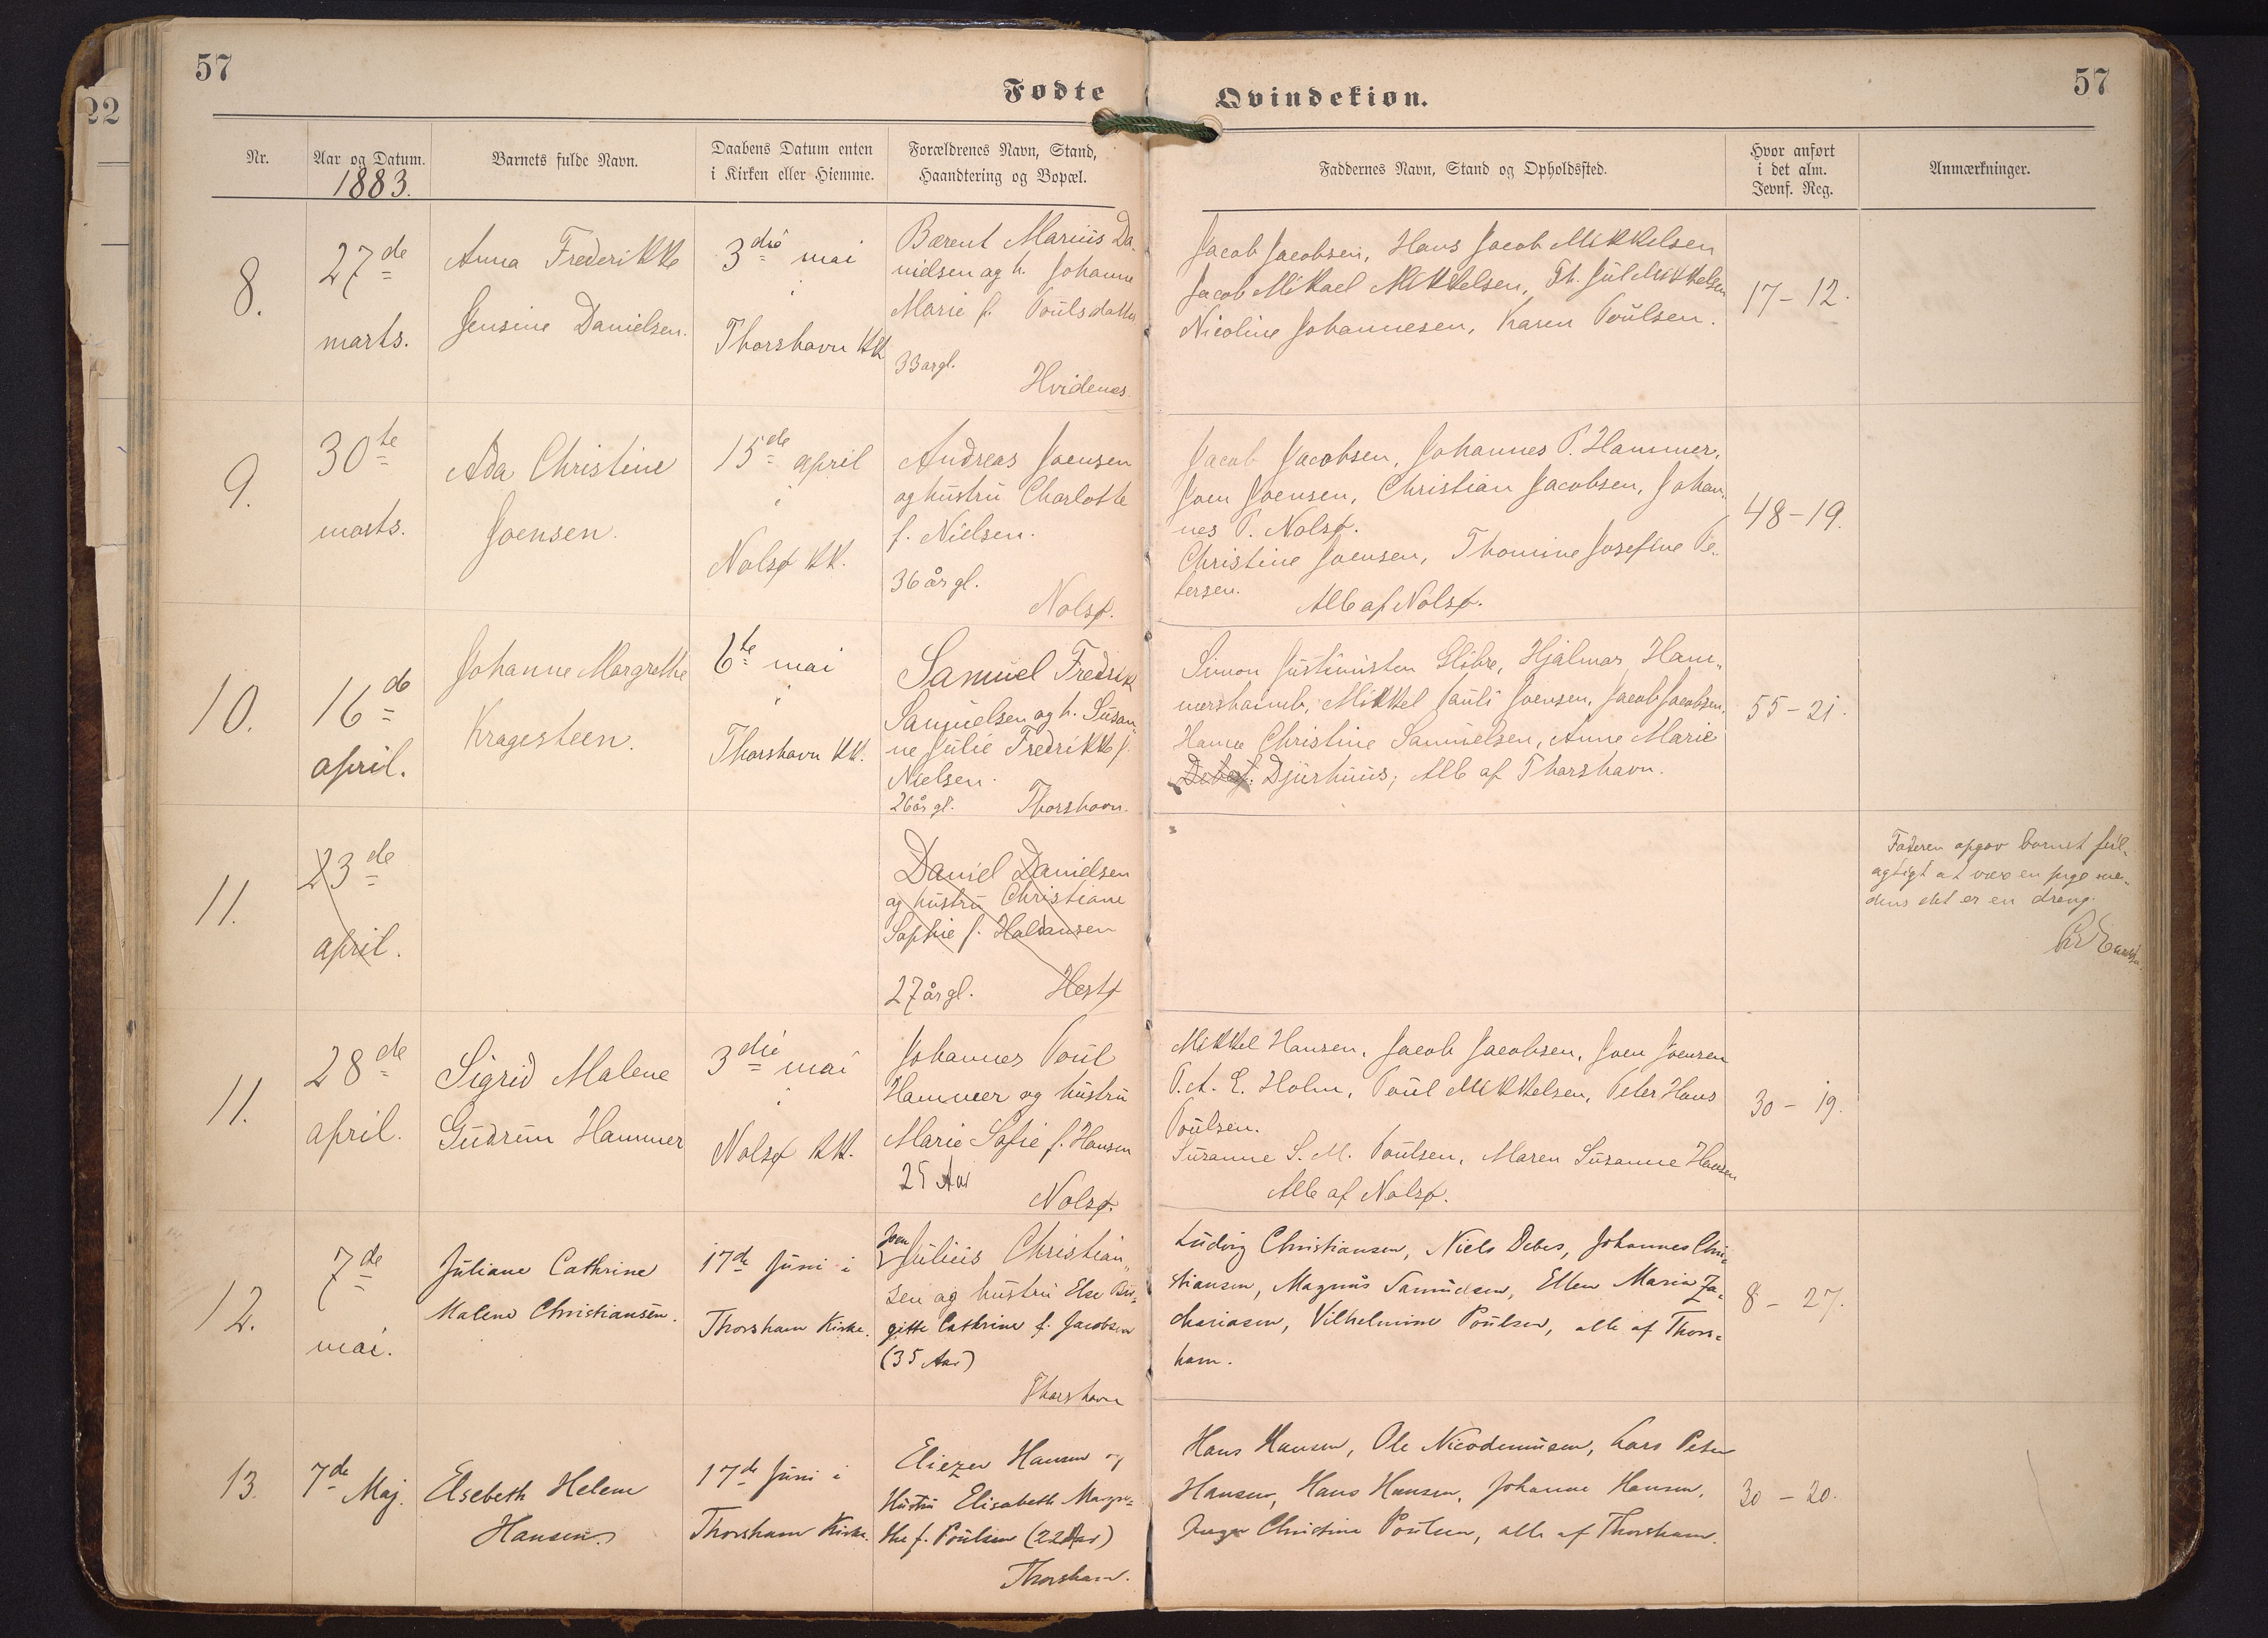 57
57
22
Fødte
Qvindekiøn.
Nr.
Aar og Datum.
1883.
Barnets fulde Navn.
Daabens Datum enten
i Kirken eller Hiemme.
Forældrenes Navn, Stand,
Haandtering og Bopæl.
Faddernes Navn, Stand og Opholdssted.
Hvor anført
i det alm.
Jevnf. Reg.
Anmærkninger.
8.
27de
marts.
Anna Frederikke
Jensine Danielsen.
3die mai
i
Thorshavn KK
Bærent Marius Da-
nielsen og h. Johanne
Marie f. Poulsdatter
33 årgl.
Hvidenes
Jacob Jacobsen, Hans Jacob Mikkelsen
Jacob Mikael Mikkelsen, Th. Jul Mikkelsen
Nicoline Johannesen, Karen Poulsen.
17-12.
9.
30te
marts.
Ada Christine
Joensen.
15de april
i
Nolsø KK.
Andreas Joensen
og hustru Charlotte
f. Nielsen.
36 år gl.
Nolsø.
Jacob Jacobsen, Johannes P. Hammer,
Joen Joensen, Christian Jacobsen, Johan-
nes P. Nolsø.
Christine Joensen, Thomine Josefine Pe-
tersen.
Alle af Nolsø.
48-19.
10.
16de
april.
Johanne Margrethe
Kragesteen.
6te mai
i
Thorshavn KK.
Samuel Fredrik
Samuelsen og h. Susan-
ne Julie Fredrikke f.
Nielsen.
26 år gl.
Thorshavn.
Simon Justinusten Glibre, Hjalmar Ham-
mershaimb, Mikkel Pauli Joensen, Jacob Jacobsen,
Hanna Christine Samuelsen, Anne Marie
Debes f. Djurhuus, Alle af Thorshavn.
55-21.
11.
23de
april.
Daniel Danielsen
og hustru Christiane
Sophie f. Haldansen
27 år gl.
Hestø
Faderen opgav barnet feil-
agtigt at være en pige me-
dens det er en dreng.
11.
28de
april.
Sigrid Malene
Gudrun Hammer
3die mai
i
Nolsø KK.
Johannes Poul
Hammer og hustru
Marie Sofie f. Hansen
25 Aar
Nolsø.
Mikkel Hansen, Jacob Jacobsen, Joen Joensen
P. A. E. Holm, Poul Mikkelsen, Peter Hans
Poulsen.
Susanne S. M. Poulsen, Maren Susanne Hansen
Alle af Nolsø.
30 - 19.
12.
7de
mai.
Juliane Cathrine
Malene Christiansen.
17de Juni i
Thorshavn Kirke.
Joen
Julius Christian-
sen og hustru Else Bir-
gitte Cathrine f. Jacobsen
(35 Aar)
Thorshavn
Ludvig Christiansen, Niels Debes, Johannes Chri-
stiansen, Magnus Samuelsen, Ellen Maria Za-
chariasen, Vilhelmine Poulsen, alle af Thors-
havn.
8 - 27.
13.
7de Maj.
Elsebeth Helene
Hansen
17de Juni i
Thorshavn Kirke.
Eliezer Hansen og
Hustru Elisabeth Margre-
the f. Poulsen (22 Aar)
Thorshavn.
Hans Hansen, Ole Nicodemusen, Lars Peter
Hansen, Hans Hansen, Johanne Hansen,
Inger Christine Poulsen, alle af Thorshavn.
30 - 20.